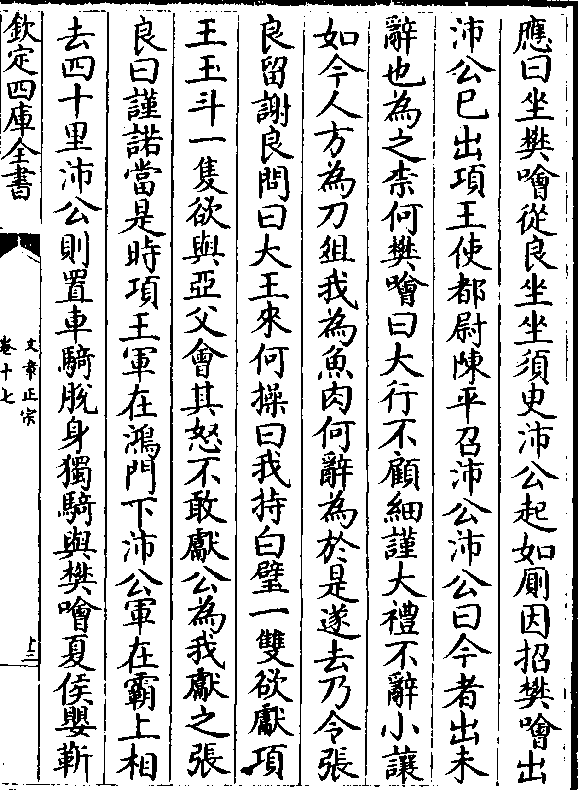 應曰坐樊噲從良坐坐須臾沛公起如厠因招樊噲出
沛公已出項王使都尉陳平召沛公沛公曰今者出未
辭也為之柰何樊噲曰大行不顧細謹大禮不辭小讓
如今人方為刀俎我為魚肉何辭為於是遂去乃令張
良留謝良問曰大王來何操曰我持白璧一雙欲獻項
王玉斗一隻欲與亞父會其怒不敢獻公為我獻之張
良曰謹諾當是時項王軍在鴻門下沛公軍在霸上相
去四十里沛公則置車騎脫身獨騎與樊噲夏侯嬰靳
欽定四庫全書
文章正宗
卷十七